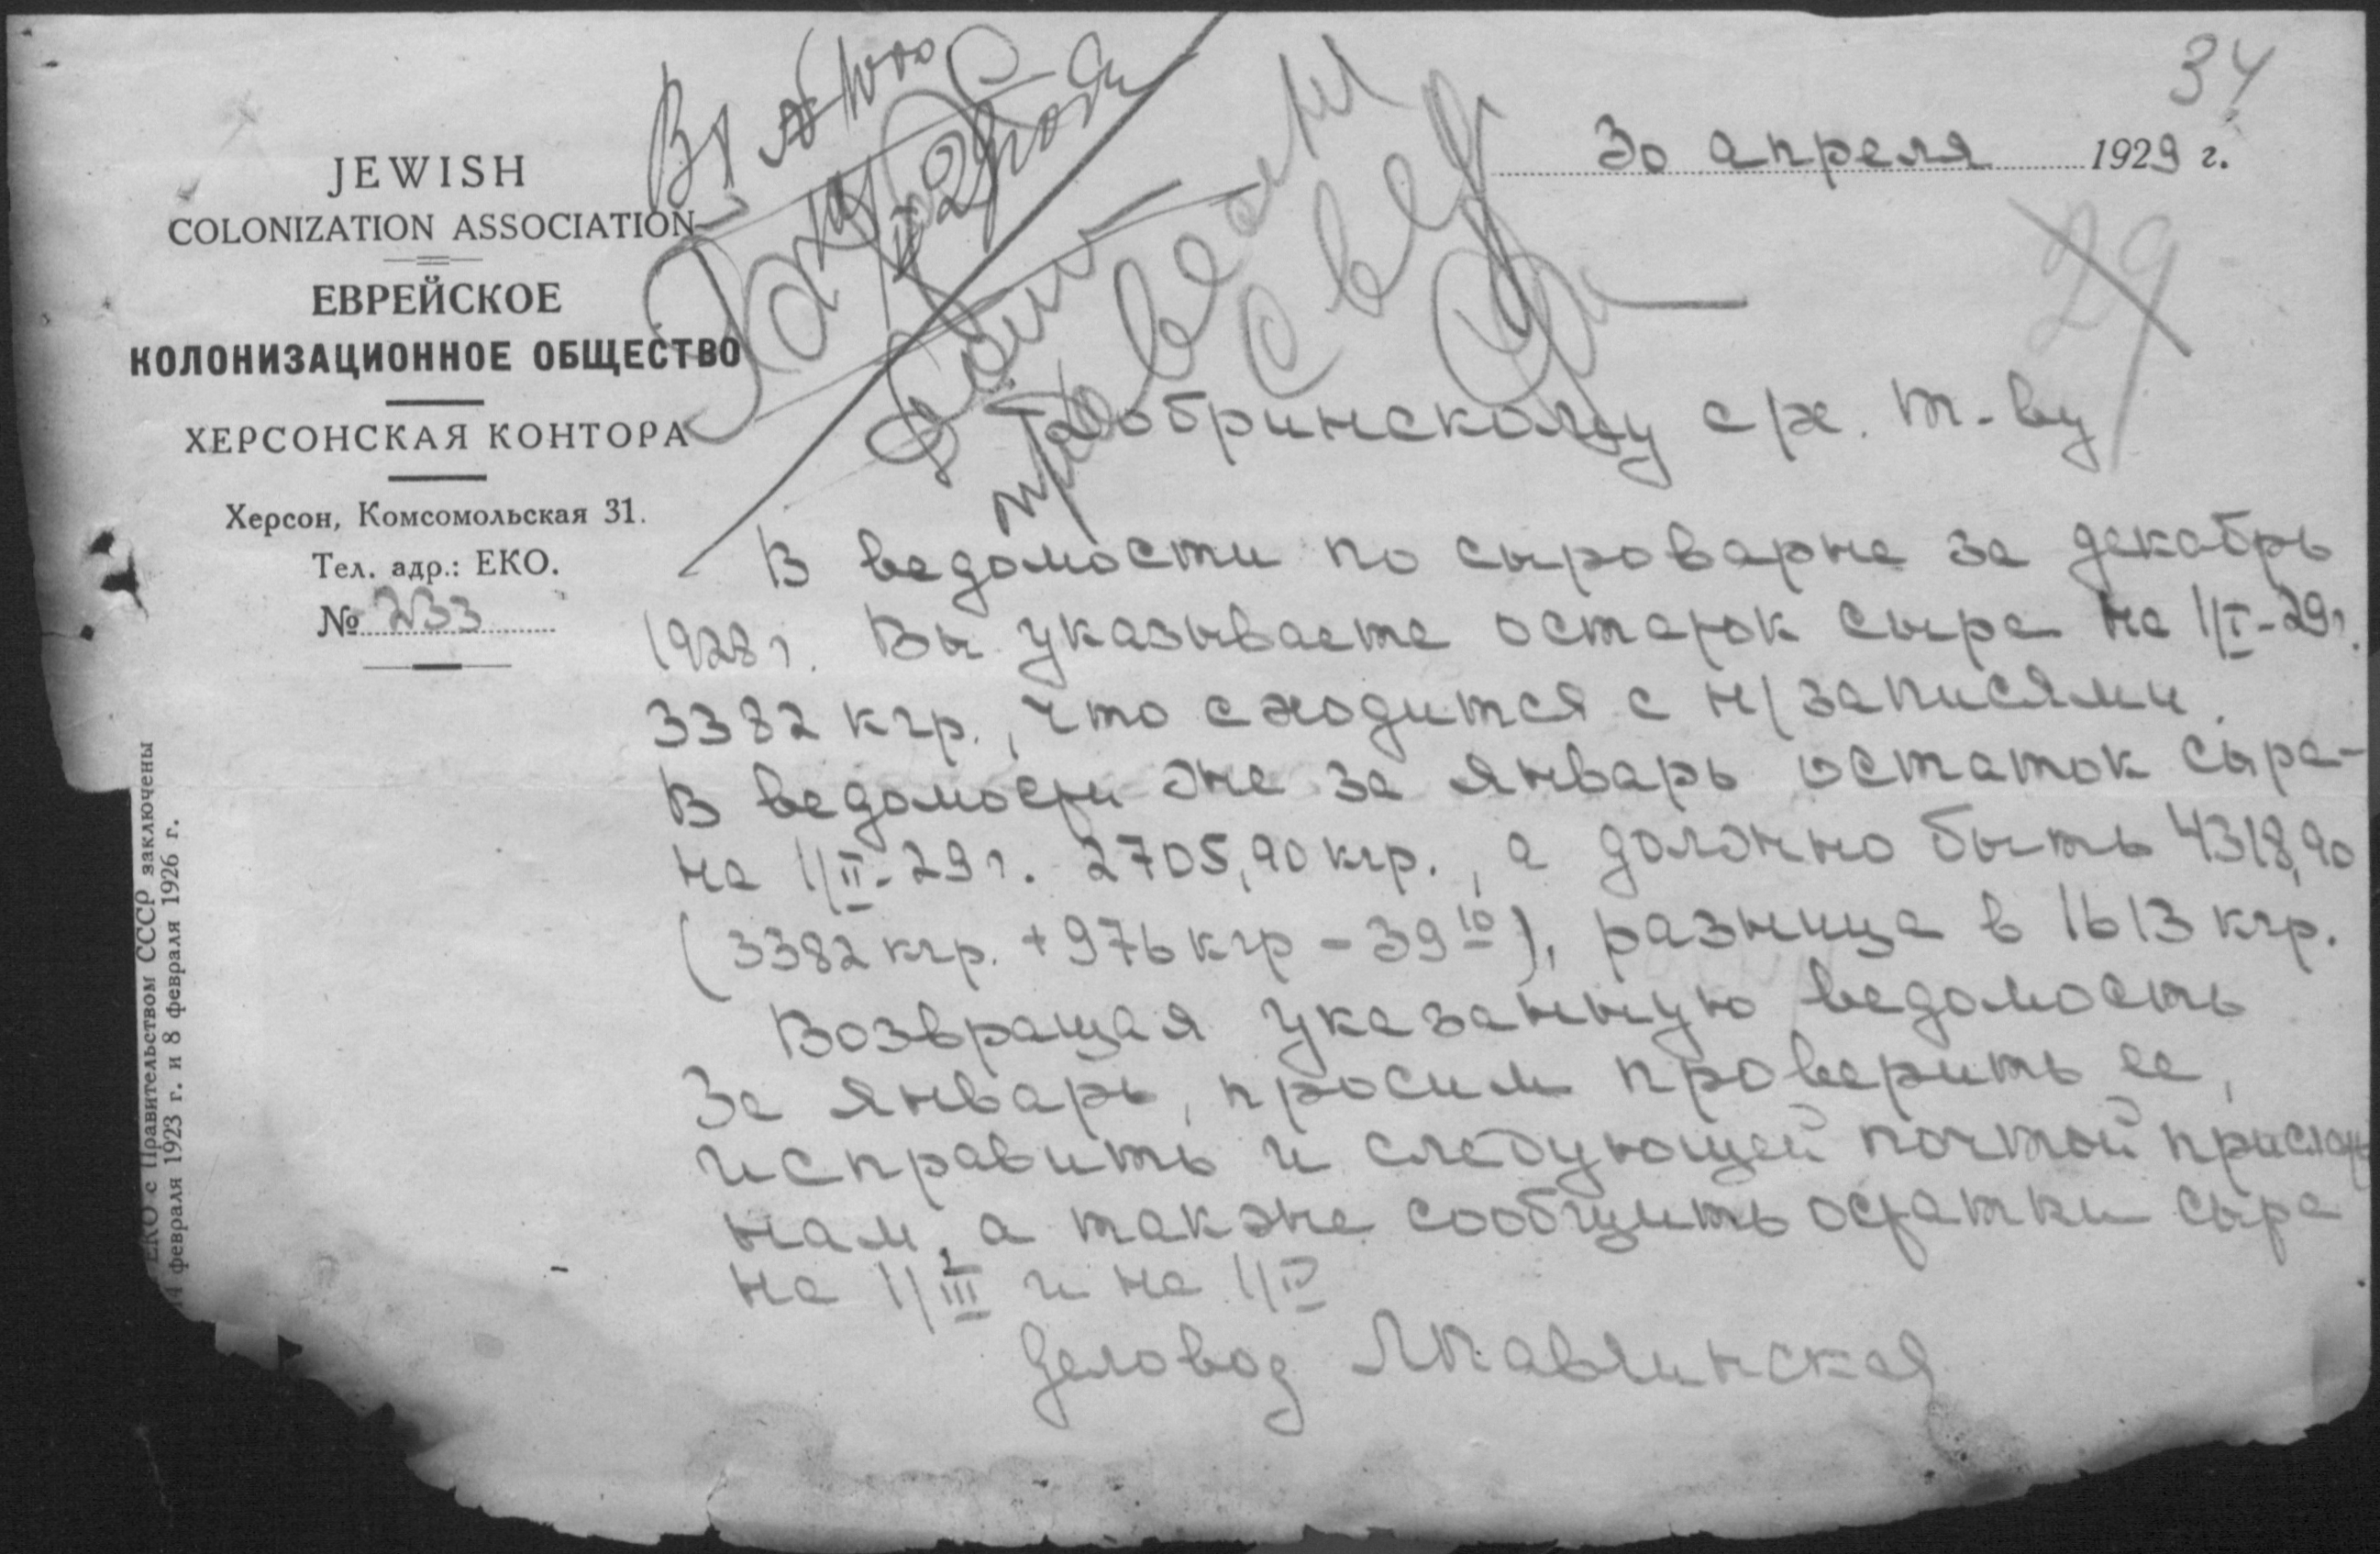 34
30 апреля 1929 г.
29
JEWISH
COLONIZATION ASSOCIATION
ЕВРЕЙСКОЕ
КОЛОНИЗАЦИОННОЕ ОБЩЕСТВО
ХЕРСОНСКАЯ КОНТОРА
Херсон, Комсомольская 31.
Тел. адр.: ЕКО.
№ 233
ЕКО с Правительством СССР заключены
февраля 1923 г. и 8 февраля 1926 г.
Добринскому с/х. т-ву
В ведомости по сыроварне за декабрь
1928 г. Вы указываете остаток сыра на 1/I-29 г.
3382 кгр., что сходится с н/записями.
В ведомости же за январь остаток сыра-
на 1/II-29 г. 2705,90 кгр., а должно быть 4318,90
(3382 кгр. + 976 кгр - 39 10), разница в 1613 кгр.
Возвращая указанную ведомость
за январь, просим проверить ее,
исправить и следующей почтой прислать
нам, а также сообщить остатки сыра
на 1/III и на 1/IV
Деловод ЛПавлинская